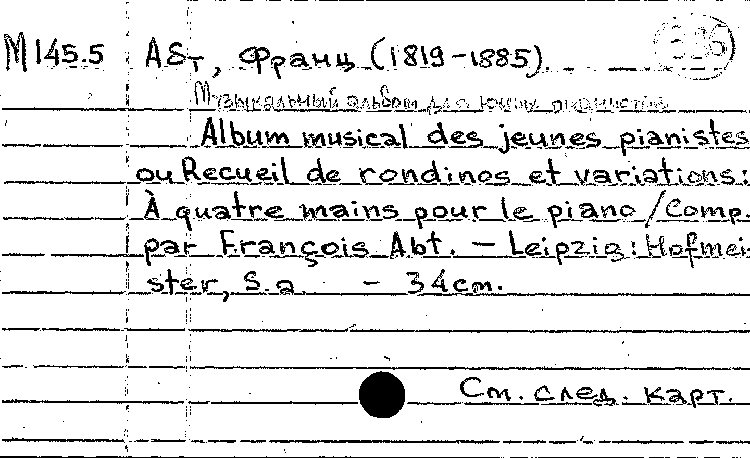 М145.5 Абт, Франц (1819-1885).
Музыкальный альбом для юных пианистов
Album musical des jeunes pianistes
ou Recueil de rondinos et variations:
À quatre mains pour le piano/Comp.
par François Abt. - Leipzig: Hofmei-
ster, S.a - 34cm.
См. след. карт.